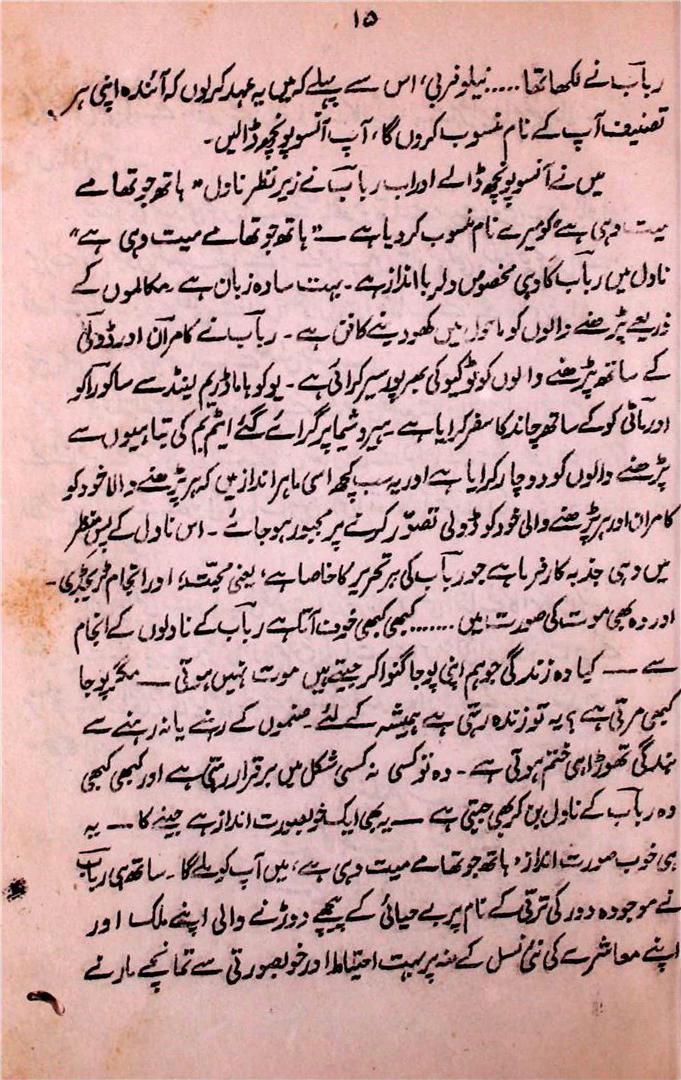 ۱۵
ربابؔ نے لکھا تھا ..... نیلوفر بی، اس سے پہلے کہ میں یہ عہد کر لوں کہ آئندہ اپنی ہر
تصنیف آپ کے نام منسوب کروں گا، آپ آنسو پونچھ ڈالیں۔
میں نے آنسو پونچھ ڈالے اور اب ربابؔ نے زیر نظر ناول "ہاتھ جو تھامے
میت وہی ہے" کو میرے نام منسوب کر دیا ہے — "ہاتھ جو تھامے میت وہی ہے"
ناول میں ربابؔ کا وہی مخصوص دلربا انداز ہے۔ بہت سادہ زبان ہے۔ مکالموں کے
ذریعے پڑھنے والوں کو ماحول میں کھو دینے کا فن ہے۔ ربابؔ نے کامران اور ڈولی
کے ساتھ پڑھنے والوں کو ٹوکیو کی بھرپور سیر کرائی ہے۔ یوکوہاما ڈریم لینڈ سے ساکورا کو
اور مائی کو کے ساتھ چاند کا سفر کرایا ہے۔ ہیروشیما پر گرائے گئے ایٹم بم کی تباہیوں سے
پڑھنے والوں کو دوچار کرایا ہے اور یہ سب کچھ اسی ماہرانداز میں کہ ہر پڑھنے والا خود کو
کامران اور ہر پڑھنے والی خود کو ڈولی تصوّر کرنے پر مجبور ہو جائے۔ اس ناول کے پس منظر
میں وہی جذبہ کارفرما ہے جو ربابؔ کی ہر تحریر کا خاصا ہے، یعنی محبت، اور انجام ٹریجڈی۔
اور وہ بھی موت کی صورت میں ....... کبھی کبھی خوف آتا ہے ربابؔ کے ناولوں کے انجام
سے — کیا وہ زندگی جو ہم اپنی پوجا گنوا کر جیتے ہیں موت نہیں ہوتی — مگر پوجا
کبھی مرتی ہے؟ یہ تو زندہ رہتی ہے ہمیشہ کے لئے۔ صنموں کے رہنے یا نہ رہنے سے
بندگی تھوڑا ہی ختم ہوتی ہے۔ وہ تو کسی نہ کسی شکل میں برقرار رہتی ہے اور کبھی کبھی
وہ ربابؔ کے ناول بن کر بھی جیتی ہے — یہ بھی ایک خوبصورت انداز ہے جینے کا — یہ
ہی خوب صورت انداز "ہاتھ جو تھامے میت وہی ہے، میں آپ کو ملے گا۔ ساتھ ہی ربابؔ
نے موجودہ دور کی ترقی کے نام پر بے حیائی کے پیچھے دوڑنے والی اپنے ملک اور
اپنے معاشرے کی نئی نسل کے منہ پر بہت احتیاط اور خوبصورتی سے تمانچے مارنے